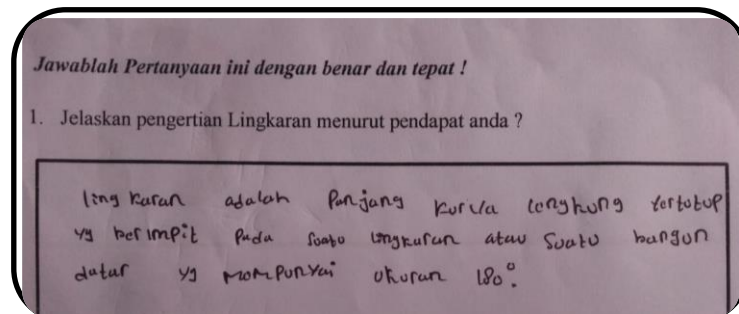 Jawablah Pertanyaan ini dengan benar dan tepat !
1. Jelaskan pengertian Lingkaran menurut pendapat anda ?
lingkaran adalah Panjang kurva lengkung tertutup
yg berimpit pada suatu lingkaran atau suatu bangun
datar yg mempunyai ukuran 180°.